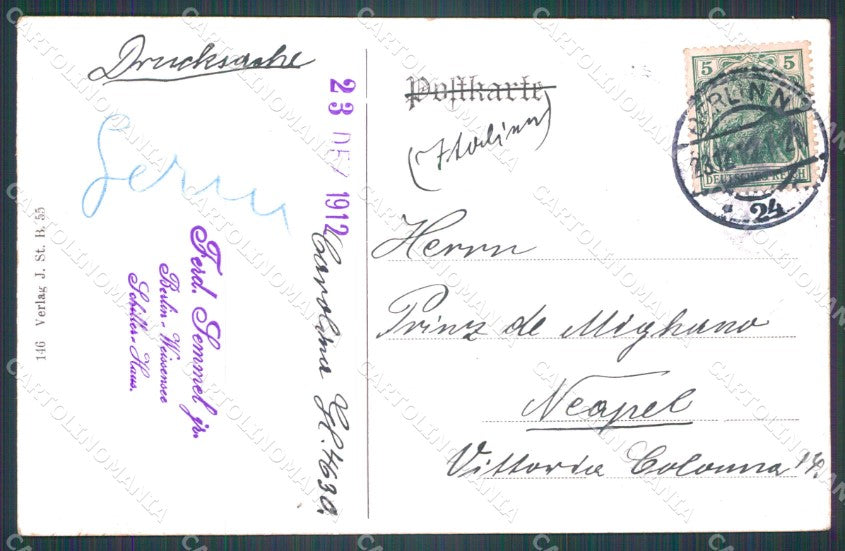 Drucksache
Postkarte
(Italien)
Herrn
Prinz de Mighano
Neapel
Vittoria Colonna 14.
23 DEZ 1912
Carolina Gl. 4630.
Ferd. Semmel jr.
Berlin-Weissensee
Schiller-Haus.
146 Verlag J. St. B. 55
5 5
DEUTSCHES REICH
BERLIN N
23.12.12
* 24
CARTOLINOMANIA